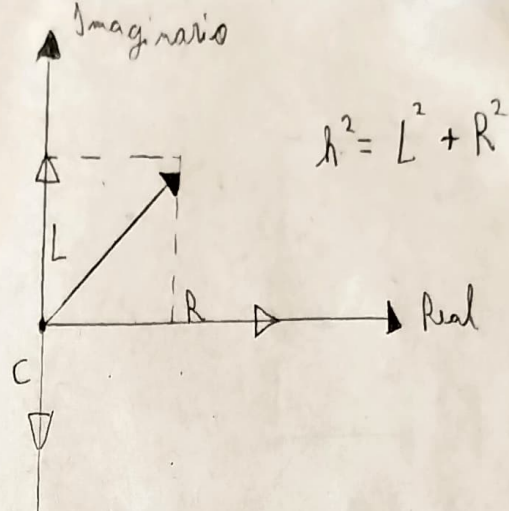 Imaginario
h² = L² + R²
L
R
Real
C